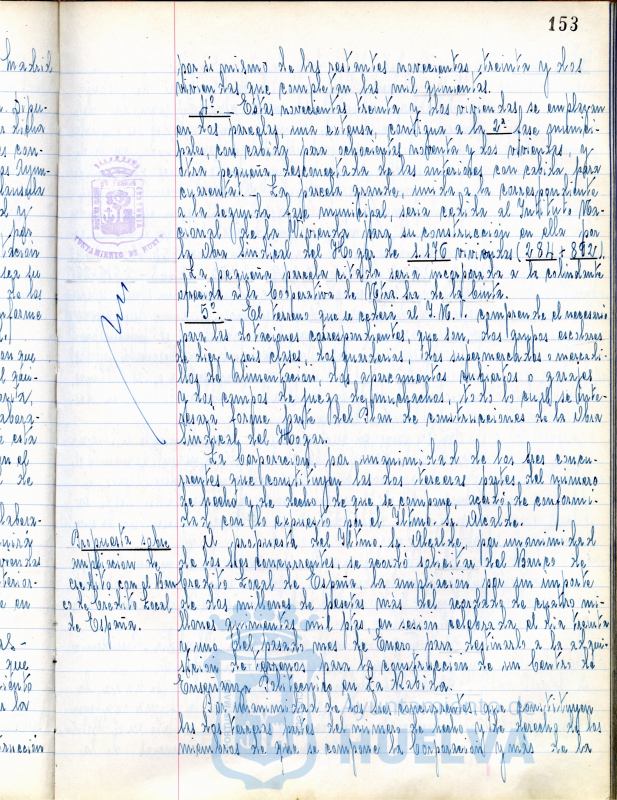 153
por si mismo de las restantes novecientas treinta y dos
viviendas que completan las mil quinientas.
4º.- Estas novecientas treinta y dos viviendas, se emplazan
en dos parcelas, una extensa, contigua a la 2ª fase munici-
pales, con cabida para ochocientas noventa y dos viviendas, y
otra pequeña, desconectada de las anteriores con cabida para
cuarenta.- La parcela grande, unida a la correspondiente
a la segunda fase municipal, seria cedida al Instituto Na-
cional de la Vivienda para su construcción en ella por
la Obra Sindical del Hogar de 1.176 viviendas (284 + 892).
La pequeña parcela citada seria incorporada a la colindante
ofrecida a la Cooperativa de Ntra. Sra. de la Cinta.
5º.- El terreno que se cederá al I.N.V. comprende el necesario
para las dotaciones correspondientes, que son, dos grupos escolares
de diez y seis clases, dos guarderias, dos supermercados o mercadi-
llos de alimentación, dos aparcamentos cubiertos o garajes
y dos campos de juego de muchachos, todo lo cual se inte-
resara forme parte del Plan de construcciones de la Obra
Sindical del Hogar.
La Corporación, por unanimidad de los tres concu-
rrentes, que constituyen las dos terceras partes del número
de hecho y de derecho de que se compone, acordó de conformi-
dad con lo expuesto por el Iltmo. Sr. Alcalde.
Propuesta sobre
ampliacion de
credito con el Ban
co de Credito Local
de España.
A propuesta del Iltmo. Sr. Alcalde por unanimidad
de los tres concurrentes, se acordó solicitar del Banco de
Credito Local de España, la ampliación por un importe
de dos millones de pesetas más del acordado de cuatro mi-
llones quinientas mil ptas. en sesión celebrada el dia treinta
y uno del pasado mes de Enero para destinarlo a la adqui-
sición de terrenos para la construccion de un Centro de
Ensenanza Politecnico en La Rabida.
Por unanimidad de los tres concurrentes que constituyen
las dos terceras partes del numero de hecho y de derecho de los
miembros de que se compone la Corporación y más de la
HUELVA